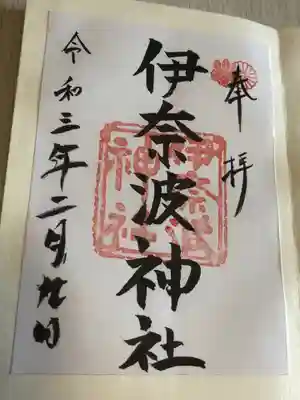 奉拝
伊奈波神社
伊奈波
神社
令和三年二月九日